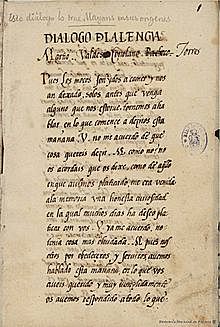 Este diálogo lo trae Mayans en sus orígenes
1
DIALOGO D LA LENGA
Marcio Valdes Coriolano Pacheco Torres
Pues los moços son ydos a comer y nos
an dexado solos, antes que venga
alguno que nos estorve, tornemos a ha
blar en lo que començe a deziros esta
mañana V. no me acuerdo de que
cosa quereis dezir. M. como no? no
os acordais que os dixe, como de aq̃llo
en que avíamos platicado me era venida
ala memoria una honesta curiosidad
en la qual muchos dias ha deseo pla
ticar con vos. V. ya me acuerdo, no
tenía cosa mas olvidada. M. pues nos
otros por obedeceros y serviros avemos
hablado esta mañana en lo que vos
aveis querido y muy cumplidamente
os avemos respondido a todo lo que
Biblioteca Nacional de España